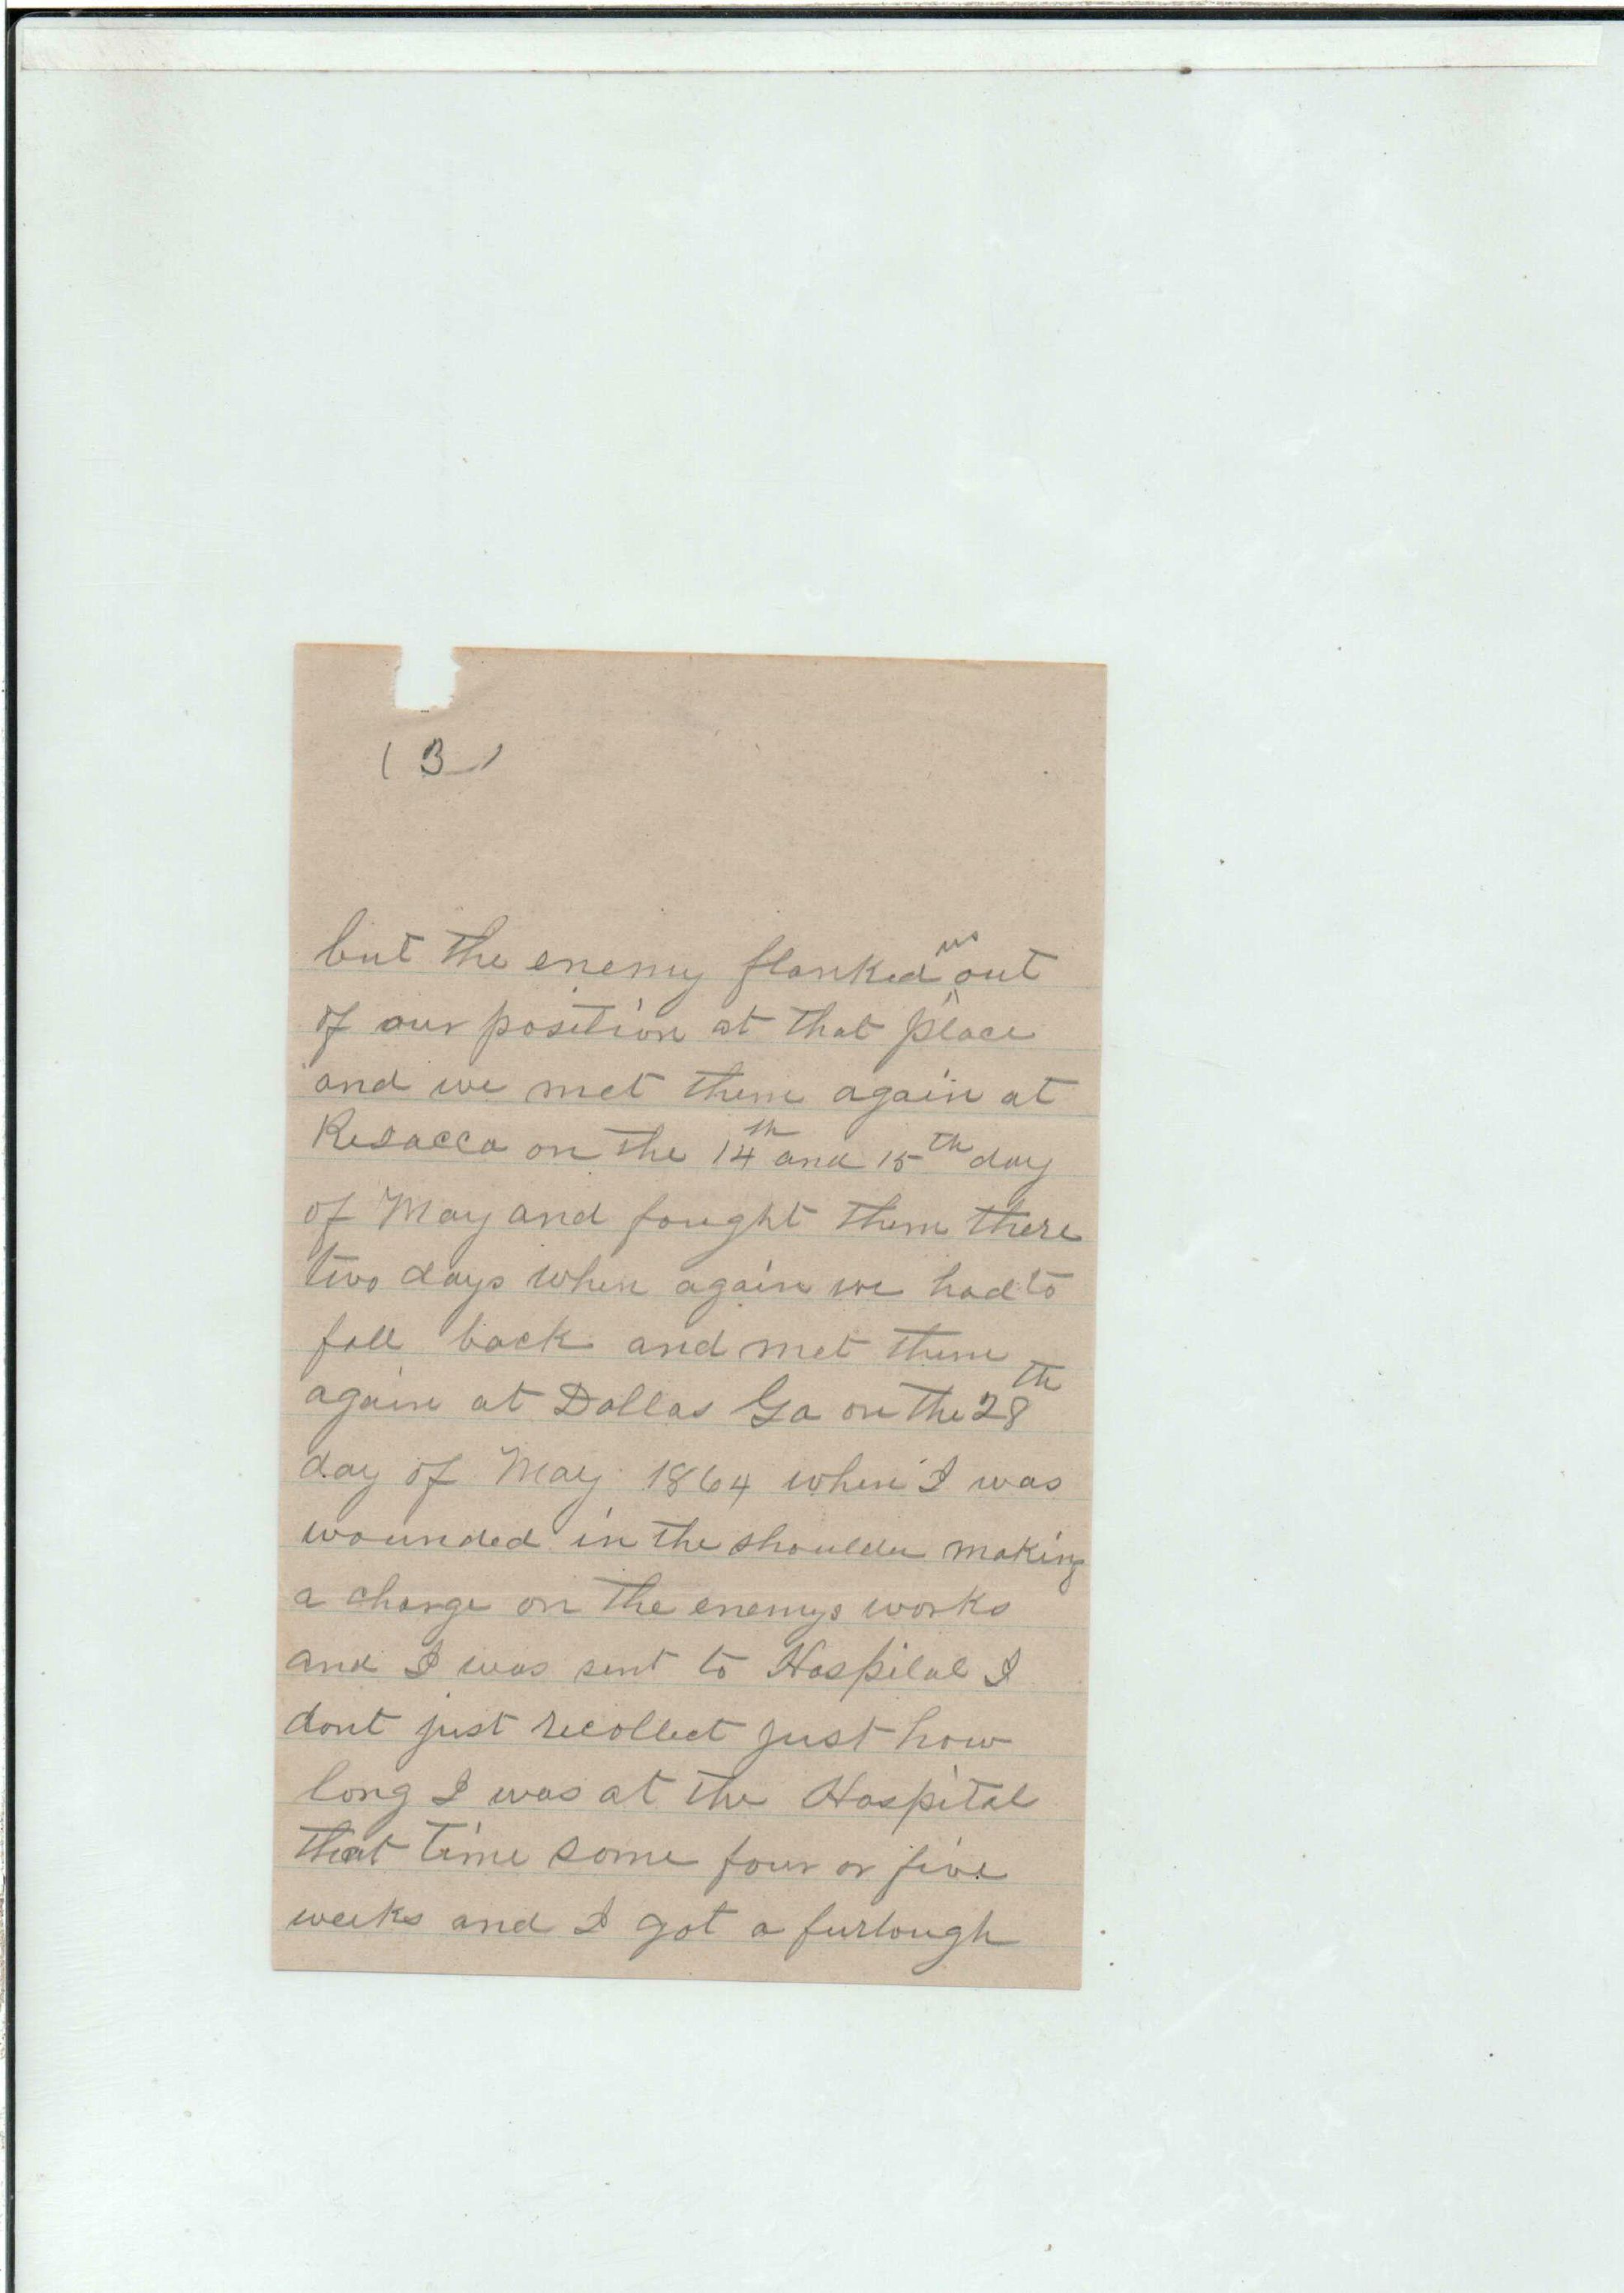 (3)
but the enemy flanked us out
of our position at that place
and we met them again at
Resacca on the 14th and 15th day
of May and fought them there
two days when again we had to
fall back and met them
again at Dallas Ga on the 28th
day of May 1864 when I was
wounded in the shoulder making
a charge on the enemys works
and I was sent to Hospital I
dont just recollect just how
long I was at the Hospital
that time some four or five
weeks and I got a furlough